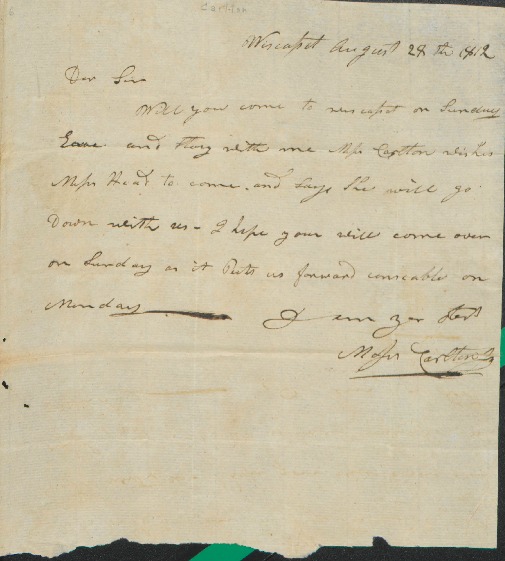 Carlton
Wiscaset August 28th 1812
Der Sir
Will you come to wiscaset on Sunday
Eave and Stay with me Miss Carlton wishes
Miss Head to come. and Says She will go
Down with us - I hope you will come over
on Sunday as it Puts us forward conscable on
Monday
I am yer Servt
Moses Carlton Jr